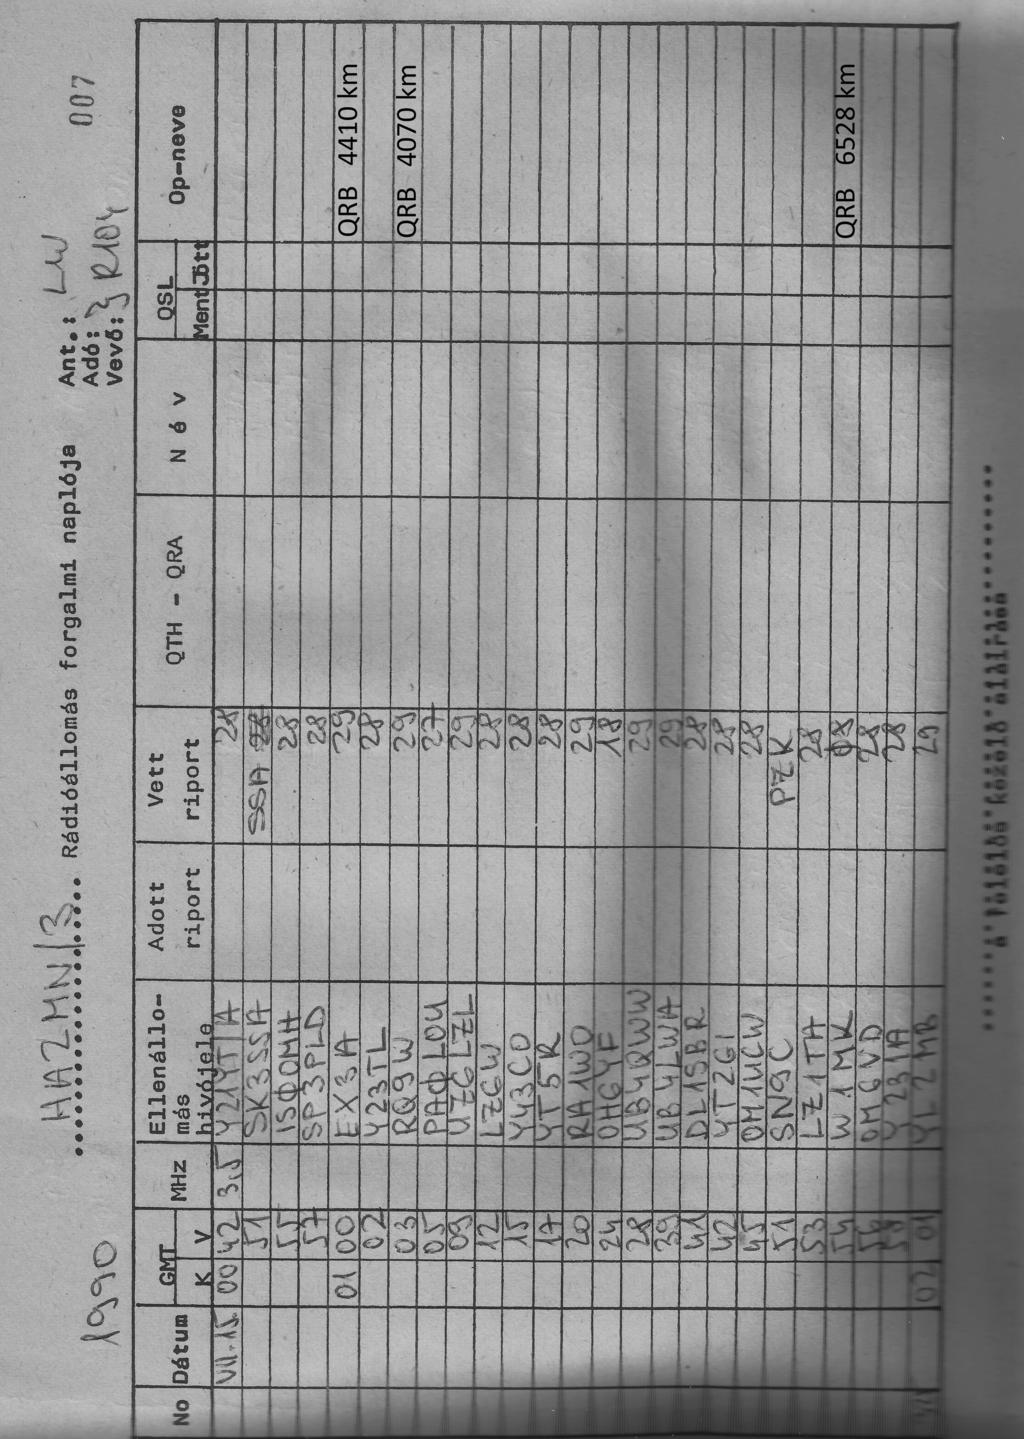 1990 HA2MN/3 Rádióállomás forgalmi naplója Ant.: LW 007
Adó: 
Vevő: R104
No Dátum GMT K V MHz Ellenállomás hívójele Adott riport Vett riport QTH - QRA N é v QSL Ment Jött Op-neve
VII.15 00 42 3,5 Y21YT/A 28
51 SK3SSA SSA 28
55 IS0OMH 28
57 SP3PLD 28
01 00 EX3A 29 QRB 4410 km
02 Y23TL 28
03 RQ9W 29 QRB 4070 km
05 PA0LOU 27
09 UZ6LZL 29
12 LZ6W 28
15 YY3CO 28
17 YT5R 28
20 RA1WO 29
24 OH6YF 18
28 UB4QWW 29
39 UB4LWA 29
41 DL1SBR 28
42 YT2GI 28
45 OM1UCW 28
51 SN9C PZK
53 LZ1TA 28
54 W1MK 08 QRB 6528 km
56 OM6VD 28
58 Y23IA 28
02 01 YL2MB 29
a felelős kezelő aláírása